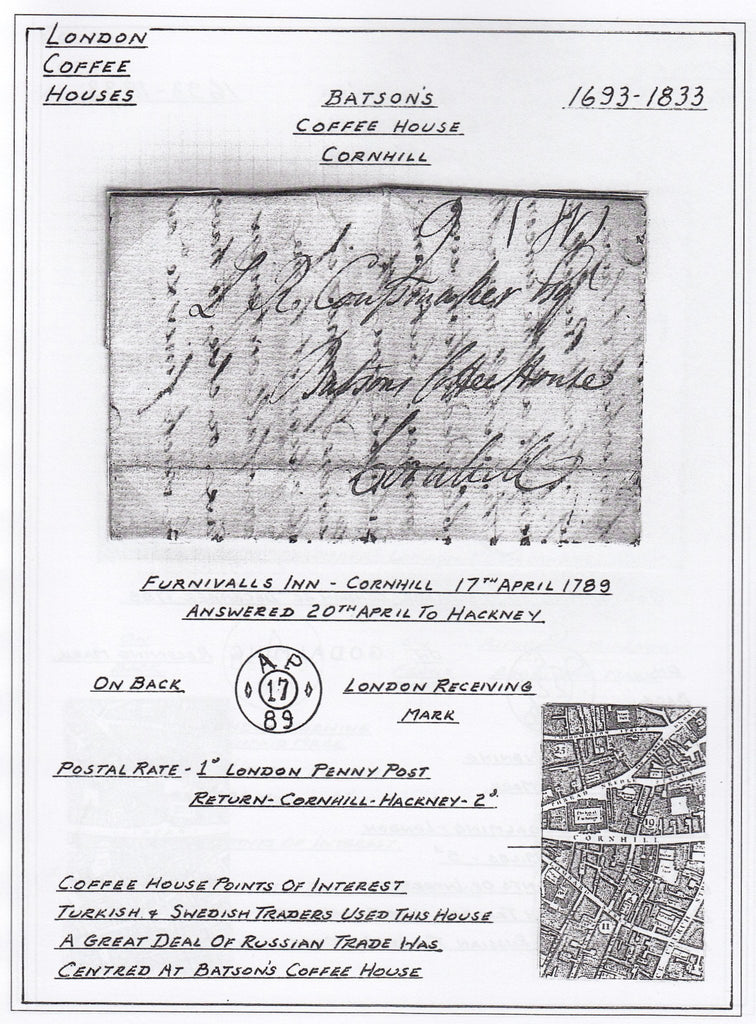 LONDON
COFFEE
HOUSES
BATSON'S
COFFEE HOUSE
CORNHILL
1693-1833
Batsons Coffee House
Cornhill
FURNIVALLS INN - CORNHILL 17TH APRIL 1789
ANSWERED 20TH APRIL TO HACKNEY
ON BACK
AP
17
89
LONDON RECEIVING
MARK
POSTAL RATE - 1D LONDON PENNY POST
RETURN - CORNHILL - HACKNEY - 2D.
CORNHILL
10
11
COFFEE HOUSE POINTS OF INTEREST
TURKISH & SWEDISH TRADERS USED THIS HOUSE
A GREAT DEAL OF RUSSIAN TRADE WAS
CENTRED AT BATSON'S COFFEE HOUSE